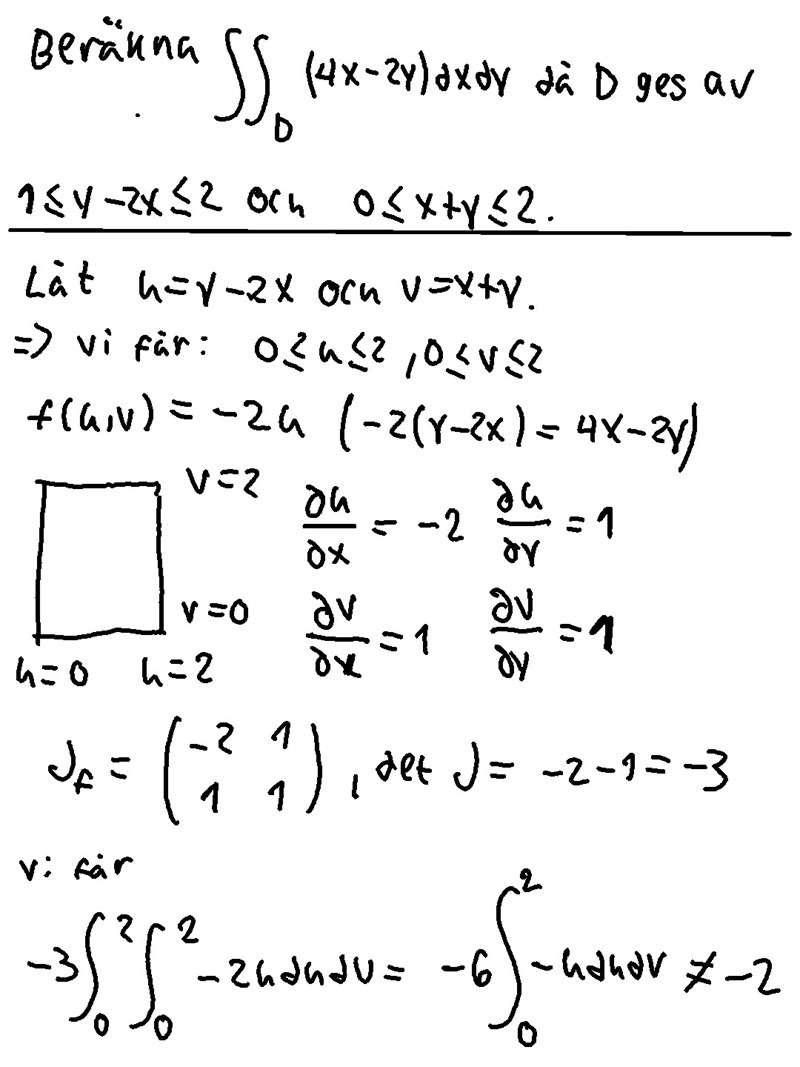 Beräkna ∬_D (4x-2y)dxdy då D ges av
1≤y-2x≤2 och 0≤x+y≤2.
Låt u=y-2x och v=x+y.
=> vi får: 0≤u≤2, 0≤v≤2
f(u,v) = -2u (-2(y-2x) = 4x-2y)
v=2
v=0
u=0 u=2
∂u/∂x = -2 ∂u/∂y = 1
∂v/∂x = 1 ∂v/∂y = 1
J_f = (-2 1; 1 1), det J = -2-1 = -3
vi får
-3∫_0^2 ∫_0^2 -2ududv = -6∫_0^2 -ududv ≠ -2